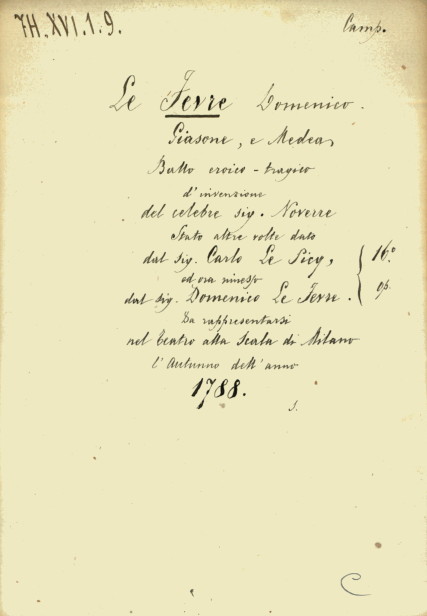 7H.XVI.1.9.
Camp.
Le Fevre Domenico.
Giasone, e Medea,
Ballo eroico-tragico
d'invenzione
del celebre sig. Noverre
Stato altre volte dato
dal sig. Carlo Le Picq,
ed ora rimesso
dal sig. Domenico Le Fevre.
16.º
op.
Da rappresentarsi
nel teatro alla Scala di Milano
l'Autunno dell'anno
1788.
s.
C